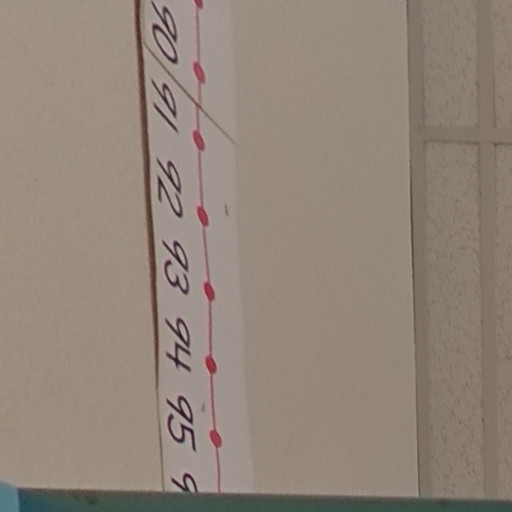 90 91 92 93 94 95 9